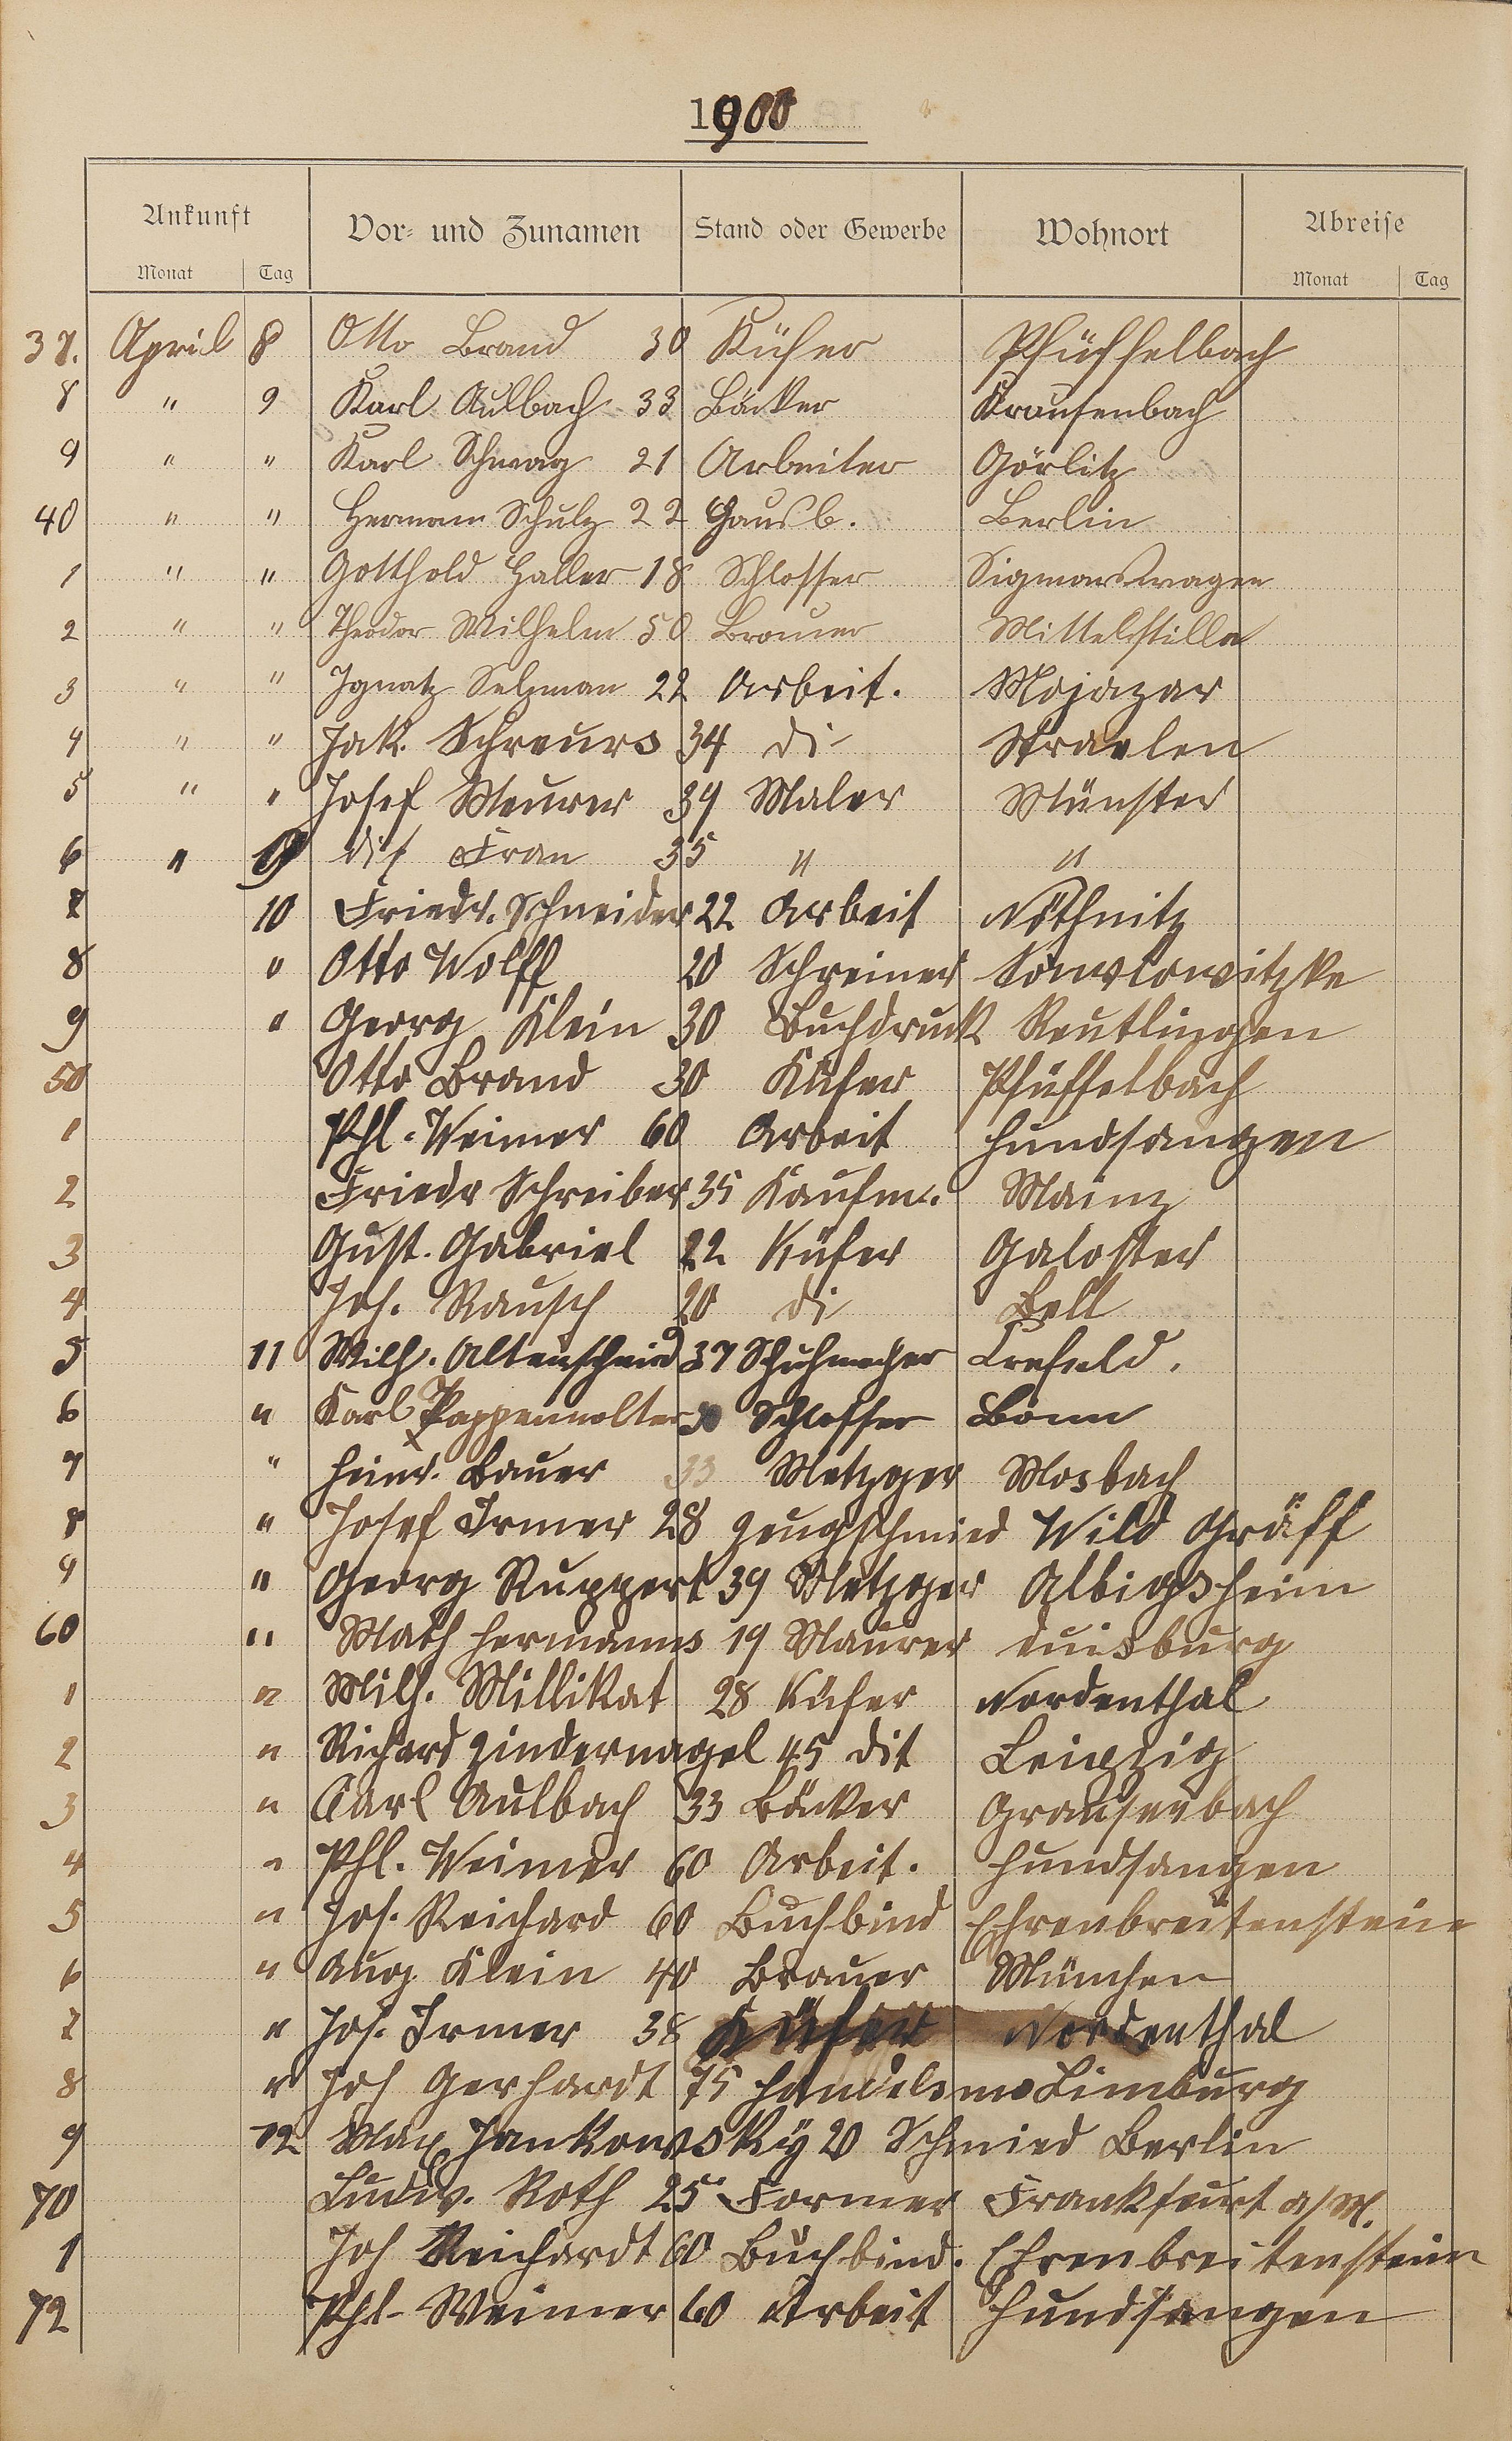 1900
Ankunft Vor= und Zunamen Stand oder Gewerbe Wohnort Abreise
Monat Tag Monat Tag
37. April 8 Otto Brand 30 Küfer Pfüffelbach
8 " 9 Karl Aulbach 33 Bäcker Krausenbach
9 " " Karl Schwarz 21 Arbeiter Görlitz
40 " " Hermann Schulz 22 Hausb. Berlin
1 " " Gotthold Haller 18 Schlosser Sigmarswangen
2 " " Theodor Wilhelm 50 Brauer Mittelstille
3 " " Ignatz Selzman 22 Arbeit. Mojazar
4 " " Jak. Schreurs 34 di Straelen
5 " " Josef Meurer 34 Maler Münster
6 " 9 dis Frau 35 " "
7 10 Friedr. Schneider 22 Arbeit Nöthnitz
8 " Otto Wolff 20 Schreiner
9 " Georg Klein 30 Buchdruck Reutlingen
50 Otto Brand 30 Küfer Pfüffelbach
1 Phl. Weimer 60 Arbeit Hundsangen
2 Friedr Schreiber 35 Kaufm. Mainz
3 Gust. Gabriel 22 Küfer Galoster
4 Jos. Rausch 20 di Bell
5 11 Wilh. Altenscheid 37 Schuhmacher Crefeld.
6 " Karl Pappenwolter 30 Schlosser Bonn
7 " Heinr. Bauer 33 Metzger Mosbach
8 " Josef Irmer 28 Zeugschmied Wild Gräff
9 " Georg Ruppert 39 Metzger Albigsheim
60 " Math Hermanns 19 Maurer Duisburg
1 " Wilh. Millikat 28 Küfer Nordenthal
2 " Richard Zindernagel 45 dit Leipzig
3 " Carl Aulbach 33 Bäcker Grausenbach
4 " Phl. Weimer 60 Arbeit. Hundsangen
5 " Jos. Reichard 60 Buchbind Ehrenbreitenstein
6 " Aug. Klein 40 Brauer München
7 " Jos. Irmer 38 Küfer Nordenthal
8 " Jos Gerhardt 75 Handelsm Limburg
9 12 Max Jankowsky 20 Schmied Berlin
70 Ludw. Roth 25 Former Frankfurt a/M.
1 Jos Reichardt 60 Buchbind. Ehrenbreitenstein
72 Phl. Weimer 60 Arbeit Hundsangen